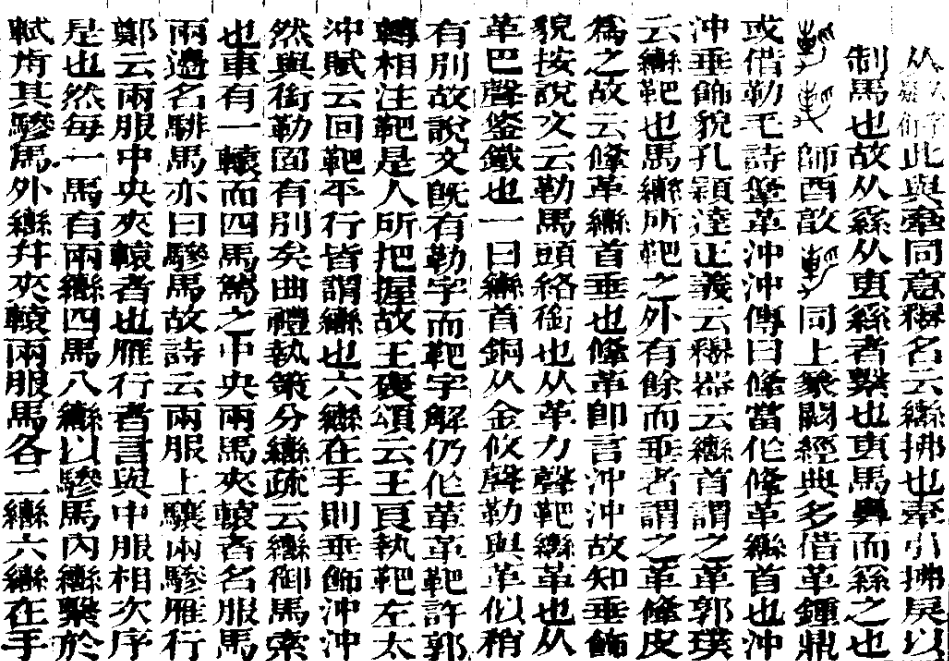 从此與牽同意釋名云轡拂也牽引拂戾以
制馬也故从絲从軎絲者繫也軎馬鼻而絲之也
師酉敦同上象闕經典多借革鐘鼎
或借勒毛詩鞗革沖沖傳曰鞗當作鞗革轡首也沖
沖垂飾貌孔穎達正義云釋器云轡首謂之革郭璞
云轡靶也馬轡所靶之外有餘而垂者謂之革鞗皮
為之故云鞗革轡首垂也鞗革卽言沖沖故知垂飾
貌按說文云勒馬頭絡銜也从革力聲靶轡革也从
革巴聲鋚鐵也一曰轡首銅从金攸聲勒與革似稍
有別故說文旣有勒字而靶字解仍作革革靶許郭
轉相注靶是人所把握故王襃頌云王良執靶左太
沖賦云回靶平行皆謂轡也六轡在手則垂飾沖沖
然與銜勒固有別矣曲禮執策分轡疏云轡御馬索
也車有一轅而四馬駕之中央兩馬夾轅者名服馬
兩邊名騑馬亦曰驂馬故詩云兩服上驤兩驂雁行
鄭云兩服中央夾轅者也雁行者言與中服相次序
是也然每一馬有兩轡四馬八轡以驂馬內轡繫於
軾前其驂馬外轡幷夾轅兩服馬各二轡六轡在手